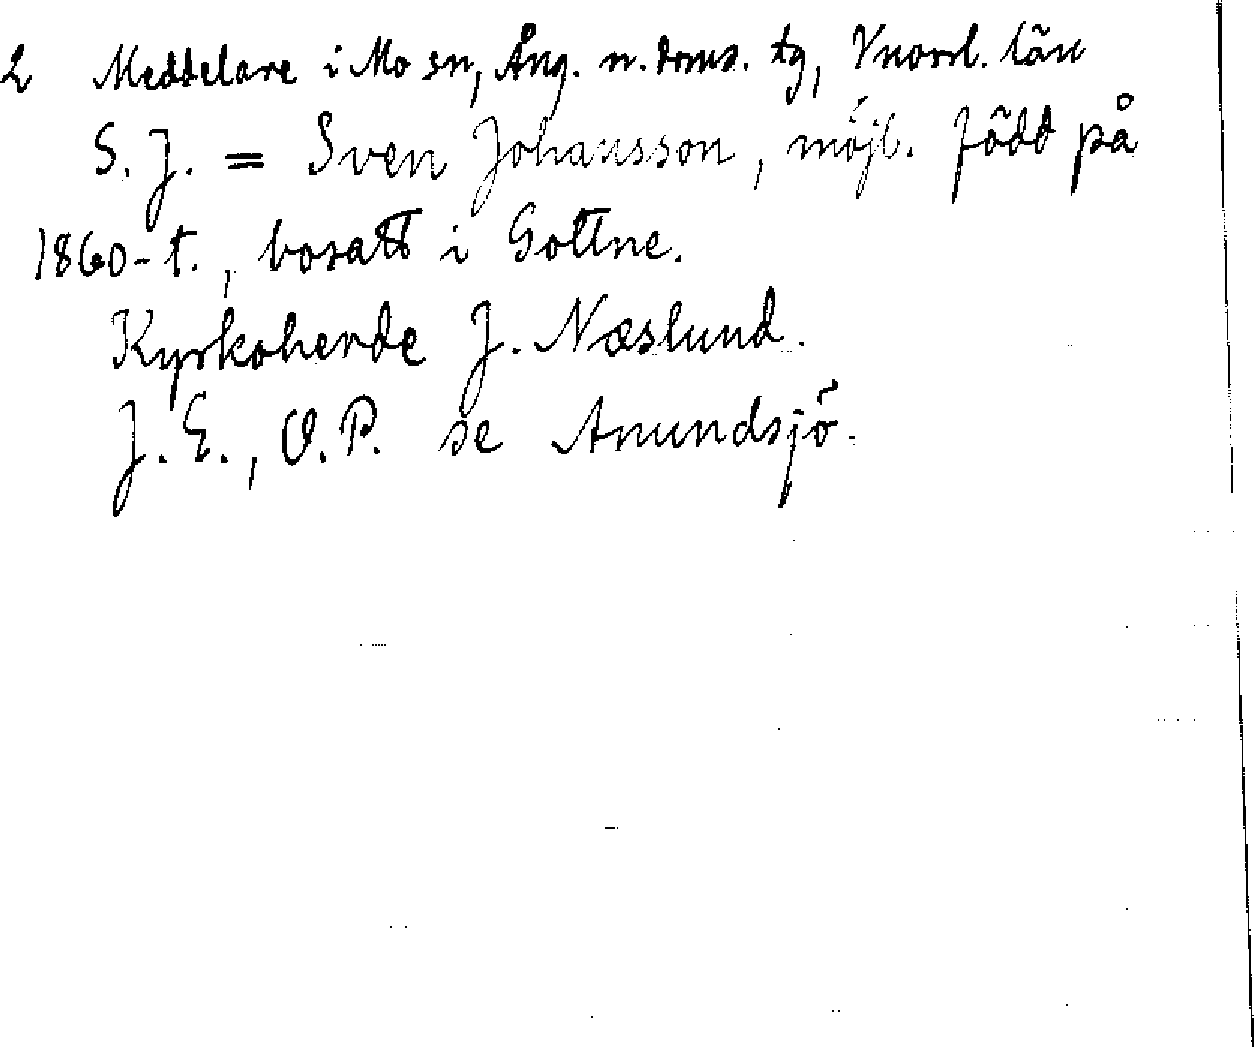 2 Meddelare i Mo sn, Ång. n. doms. tg, Vnorrl. län
S. J. = Sven Johansson, möjl. född på
1860-t., bosatt i Gottne.
Kyrkoherde J. Næslund.
J. E., O. P. se Anundsjö.